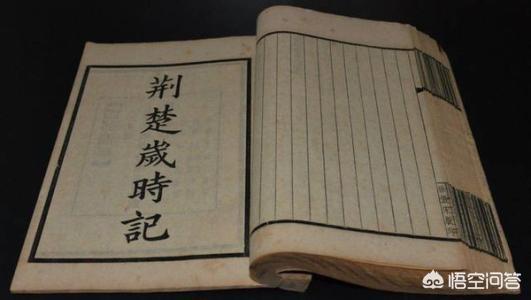 荆楚歲時記
悟空问答